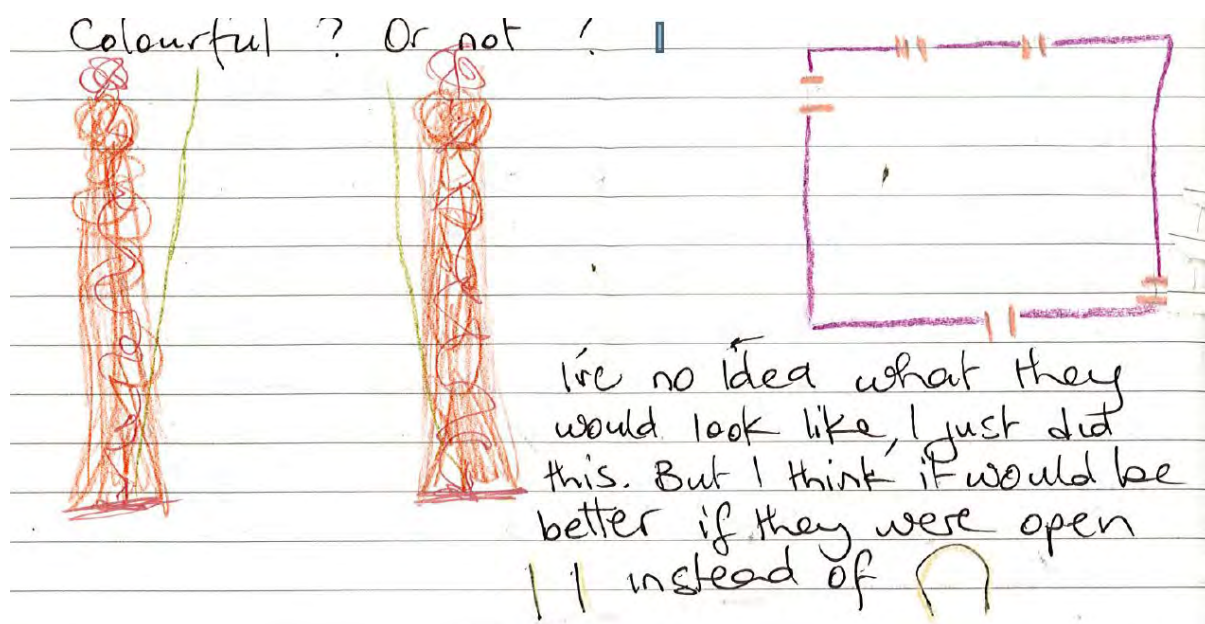 Colourful ? Or not !
I've no idea what they
would look like, I just did
this. But I think it would be
better if they were open
instead of